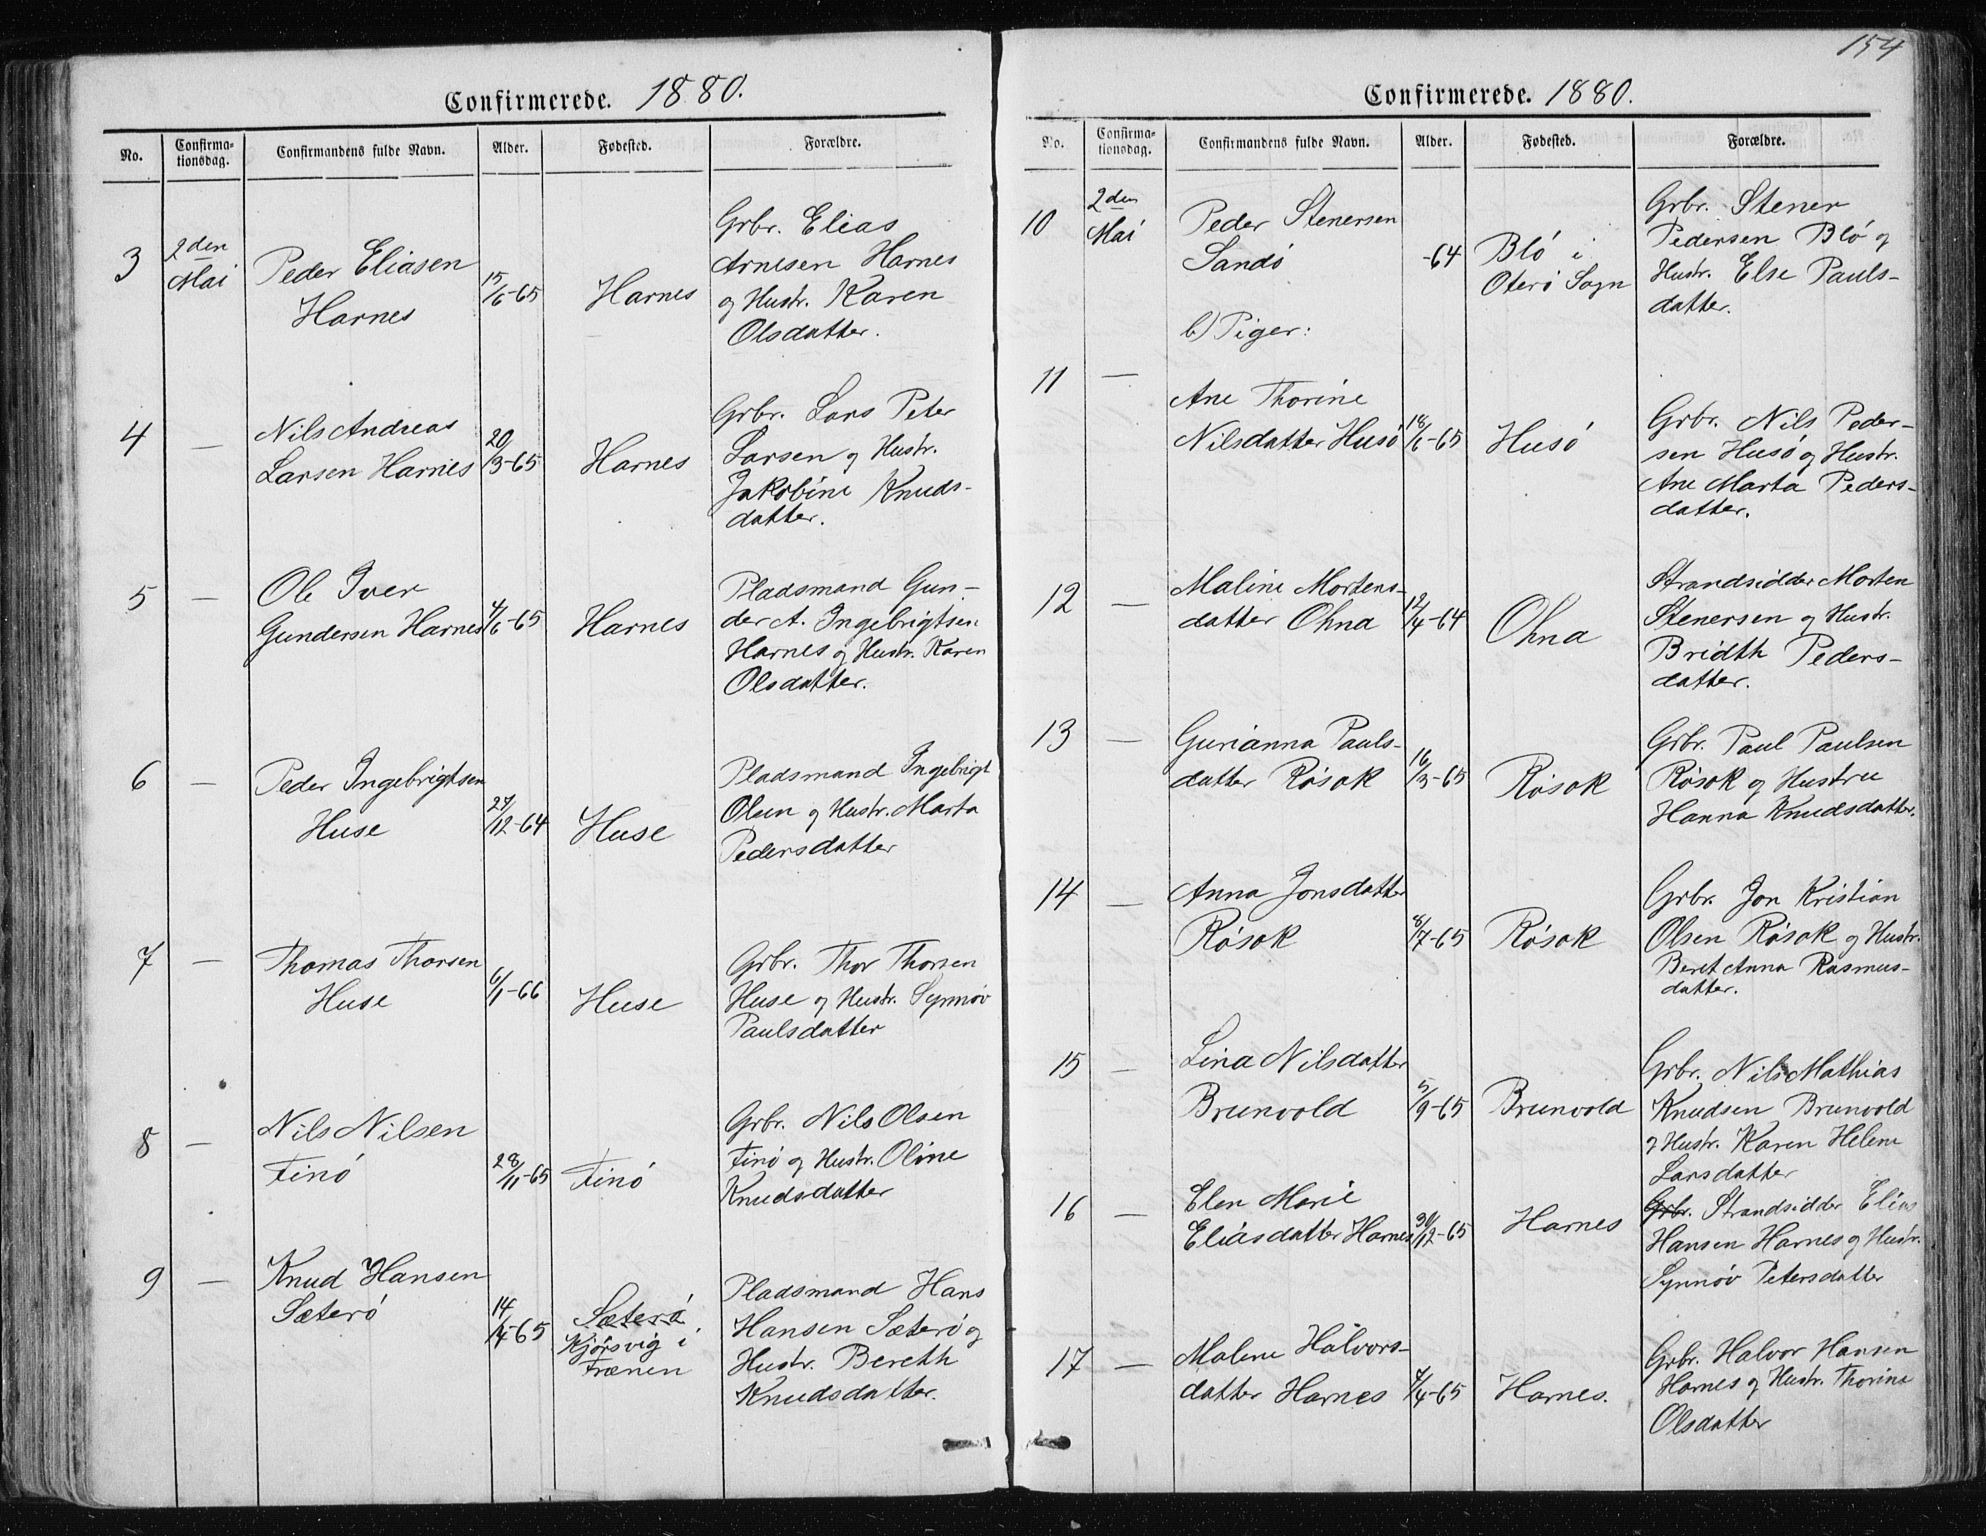 Confirmerede. 1880.
No.
Confirma-
tionsdag.
Confirmandens fulde Navn.
Alder.
Fødested.
Forældre.
3
2den
Mai
Peder Eliasen
Harnes
15/6-65
Harnes
Grbr. Elias
Arnesen Harnes
og Hustr. Karen
Olsdatter.
4
—
Nils Andreas
Larsen Harnes
20/3-65
Harnes
Grbr. Lars Peter
Larsen og Hustr.
Jakobine Knuds-
datter.
5
—
Ole Iver
Gundersen Harnes
4/6-65
Harnes
Pladsmand Gun-
der A. Ingebrigtsen
Harnes og Hustr. Karen
Olsdatter.
6
—
Peder Ingebrigtsen
Huse
27/12-64
Huse
Pladsmand Ingebrigt
Olsen og Hustr. Marta
Pedersdatter
7
—
Thomas Thorsen
Huse
6/1-66
Huse
Grbr. Thor Thorsen
Huse og Hustr. Synnøv
Paulsdatter
8
—
Nils Nilsen
Finö
28/11-65
Finö
Grbr. Nils Olsen
Finö og Hustr. Oline
Knudsdatter
9
—
Knud Hansen
Sæterö
14/4-65
Sæterö
Kjörsvig i
Frænen
Pladsmand Hans
Hansen Sæterö og
Hustr. Bereth
Knudsdatter.
154
Confirmerede. 1880.
No.
Confirma-
tionsdag.
Confirmandens fulde Navn.
Alder.
Fødested.
Forældre.
10
2den
Mai
Peder Stenersen
Sandö
-64
Blö i
Oterö Sogn
Grbr. Stener
Pedersen Blö og
Hustr. Else Pauls-
datter.
b) Piger:
11
—
Ane Thorine
Nilsdatter Husö
18/6-65
Husö
Grbr. Nils Peder-
sen Husö og Hustr.
Ane Marta Peders-
datter.
12
—
Maline Mortens-
datter Ohna
12/4-64
Ohna
Strandsidder Morten
Stenersen og Hustr.
Bridth Peders-
datter.
13
—
Gurianna Pauls-
datter Rösok
16/3-65
Rösok
Grbr. Paul Paulsen
Rösok og Hustru
Hanna Knudsdatter.
14
—
Anna Jonsdatter
Rösok
8/7-65
Rösok
Grbr. Jon Kristian
Olsen Rösok og Hustr.
Beret Anna Rasmus-
datter.
15
—
Lina Nilsdatter
Brunvold
5/9-65
Brunvold
Grbr. Nils Mathias
Knudsen Brunvold
og Hustr. Karen Helene
Larsdatter
16
—
Elen Marie
Eliasdatter Harnes
30/12-65
Harnes
Grbr. Strandsidder Elias
Hansen Harnes og Hustr.
Synnøv Petersdatter
17
—
Malene Halvors-
datter Harnes
7/4-65
Harnes.
Grbr. Halvor Hansen
Harnes og Hustr. Thorine
Olsdatter